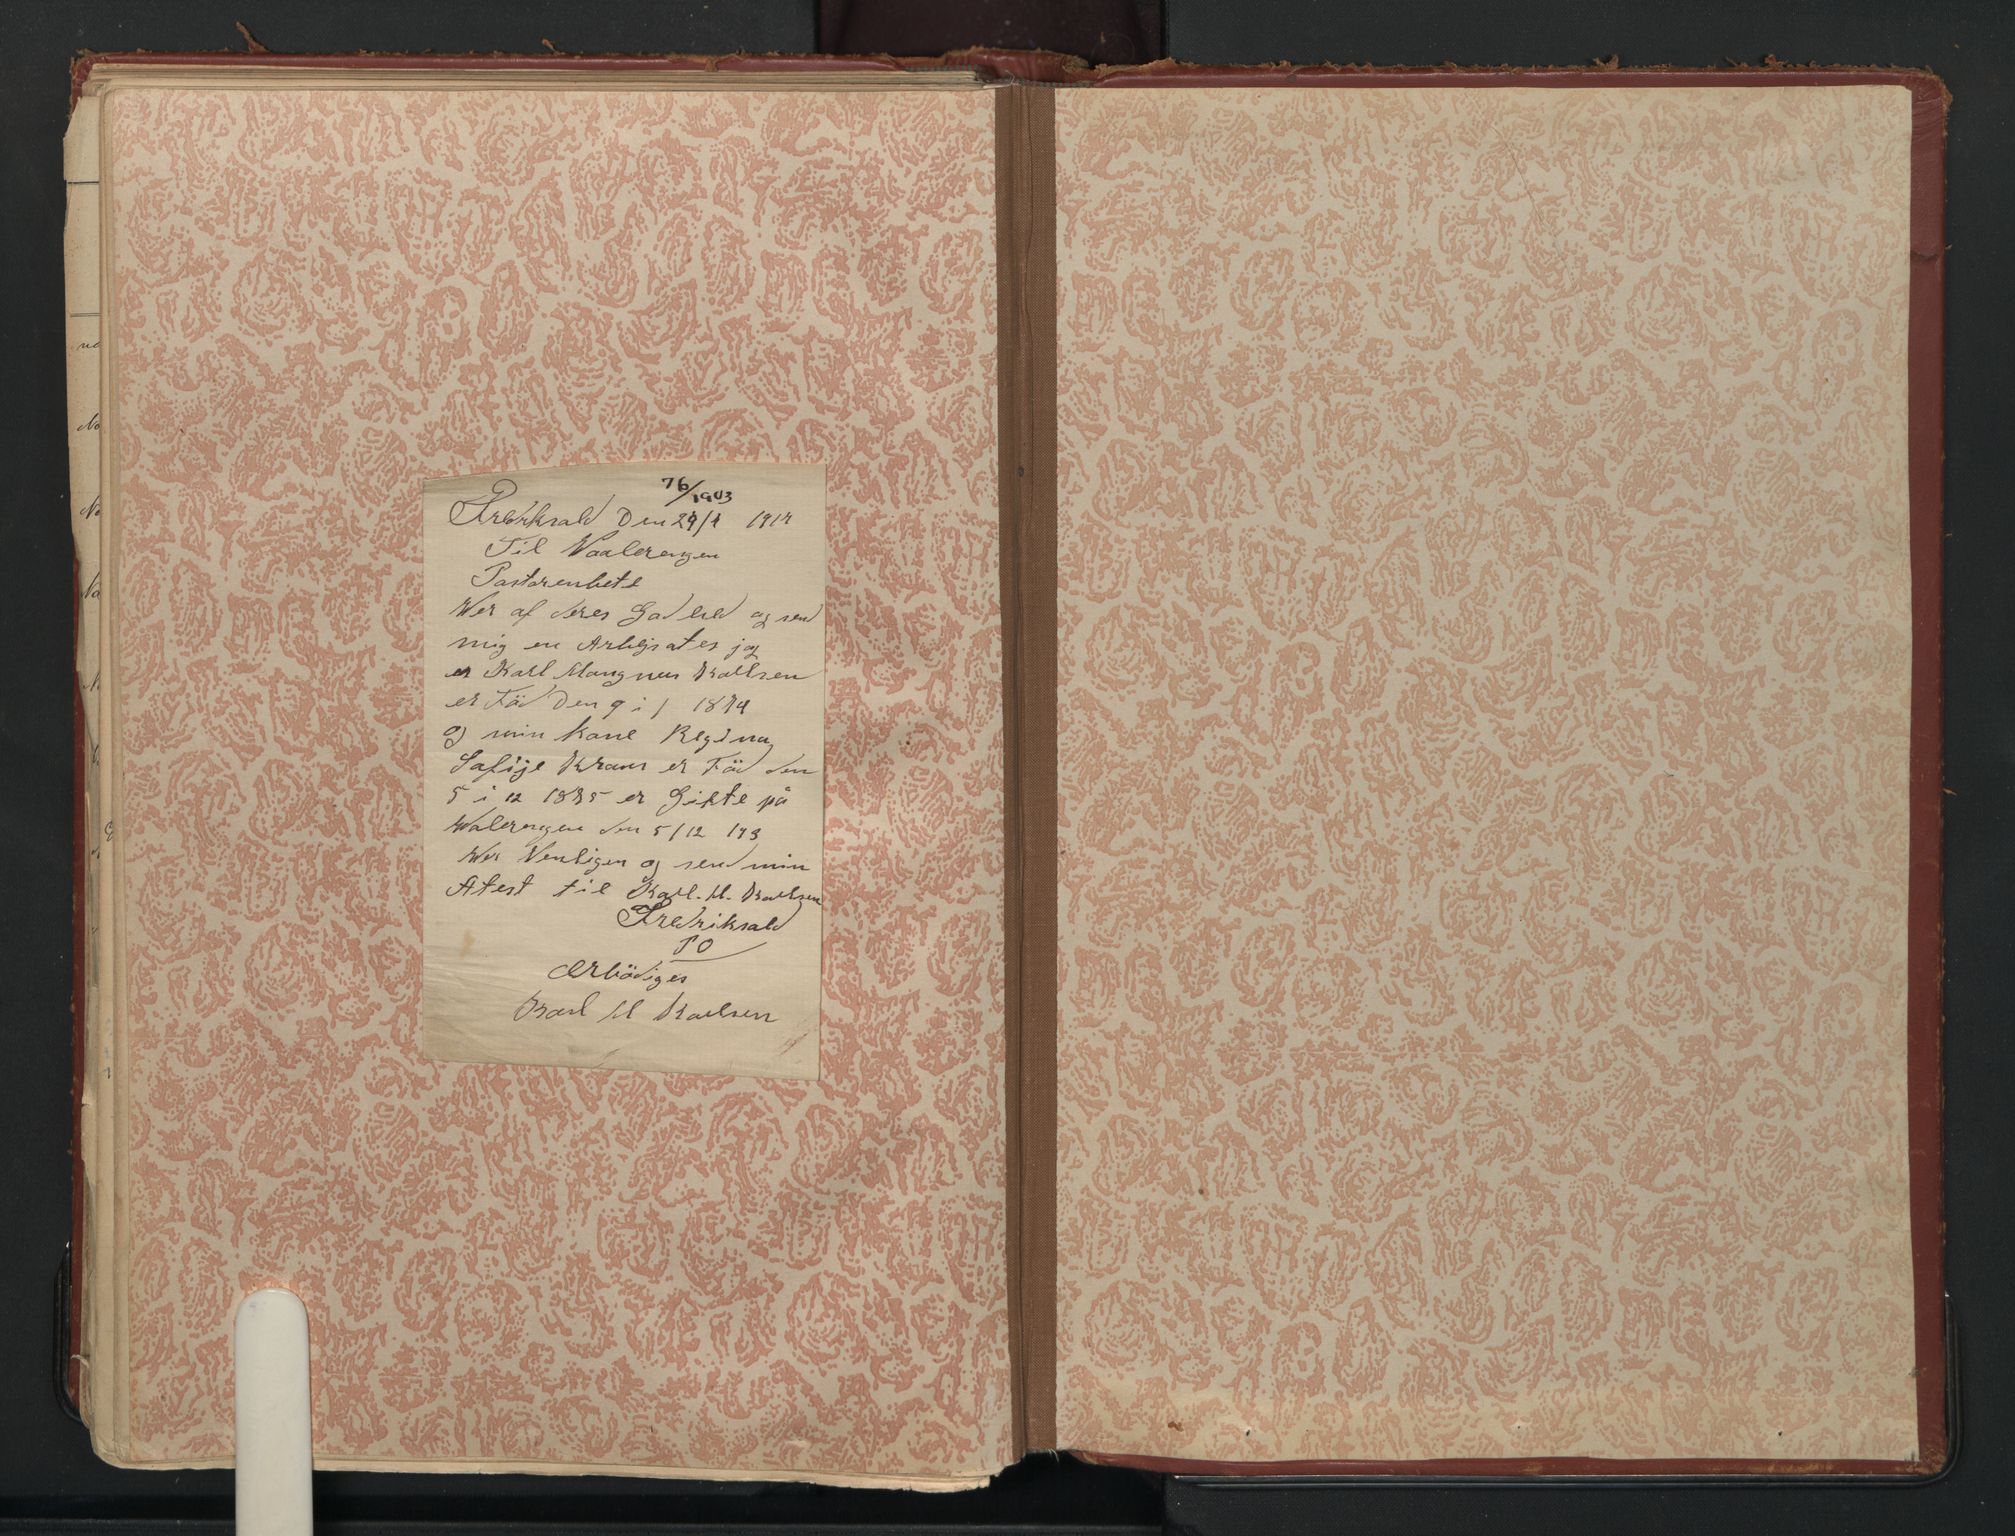 76/1903
Fredriksald Den 29/4 1914
Til Vaalerengen
Pastorenbete
Wer af deres Godhed og send
mig en Artejsates jag
er Karl Mangnus Karlsen
er Föd Den 9 i 1 1874
og min kone Regina
Safije Krans er Föd den
5 i 12 1875 er Gifte på
Walerengen den 5/12 193
Wer Venligen og send min
Atest til Karl. M. Karlsen
Fredriksald
PO
Ærbödiges
Karl M Karlsen